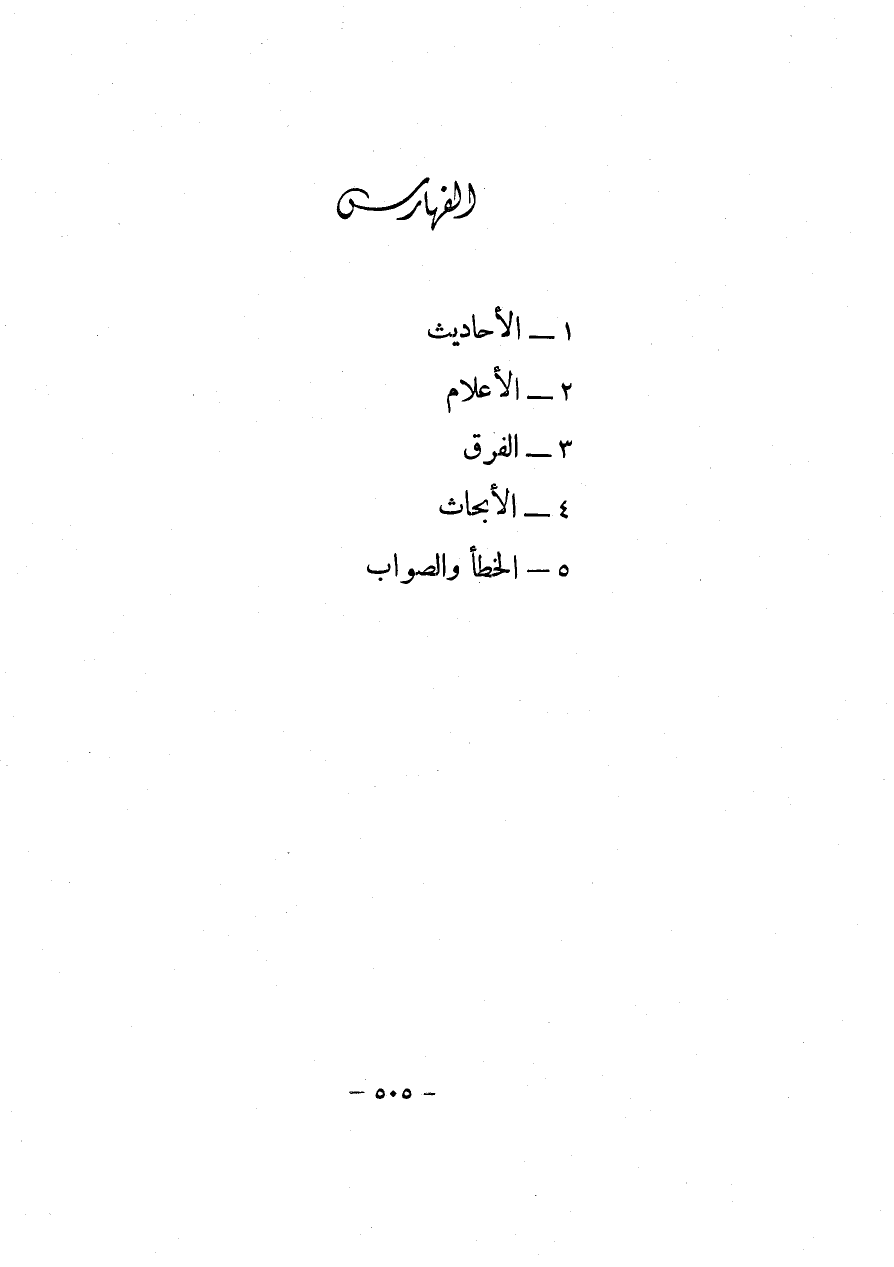 الفهارس
١ — الأحاديث
٢ — الأعلام
٣ — الفرق
٤ — الأبحاث
٥ — الخطأ والصواب
- ٥٠٥ -